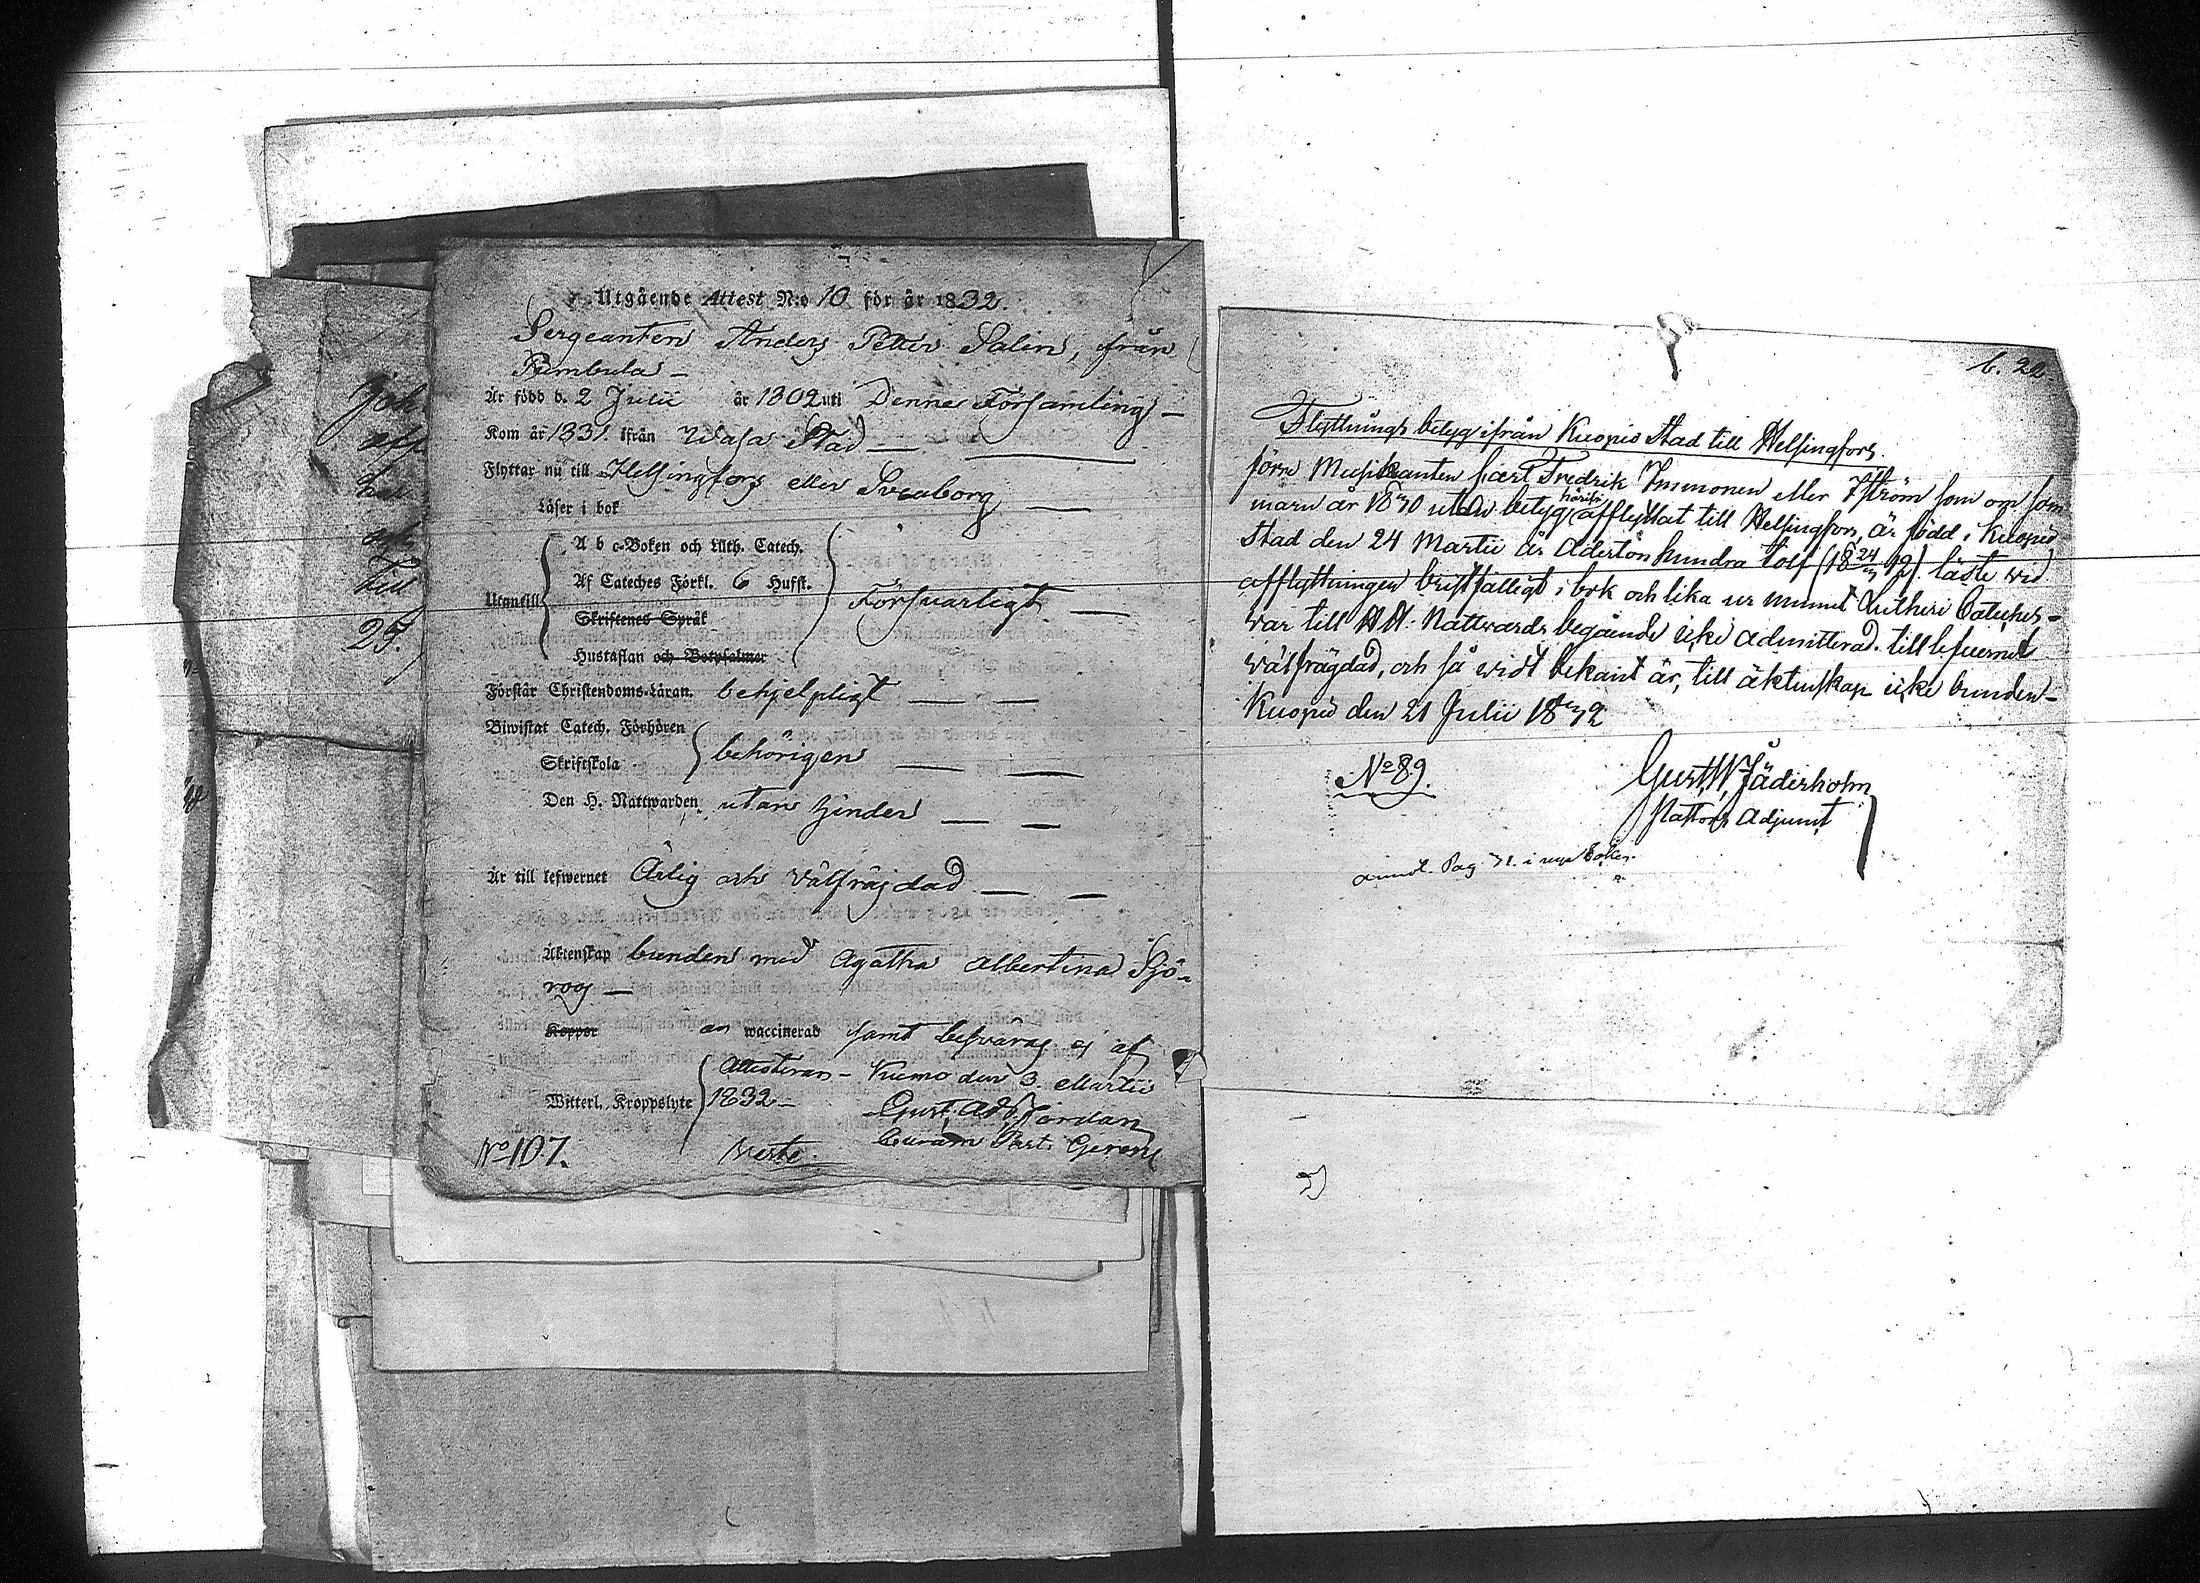 Utgående Attest N:o 10 för år 1832.
Sergeanten Anders Petter Salin, från
Pumbula –
Är född d. 2 Julii år 1802 uti Denna Församling –
Kom år 1831. ifrån Wasa Stad —
Flyttar nu till Helsingfors eller Sveaborg —
Läser i bok
A b c-Boken och Luth. Catech.
Utantill Af Cateches Förkl. 6 Hufst. Försvarligt —
Skriftenes Språk
Hustaflan och Botpsalmer
Förstår Christendoms-Läran. behjelpligt — —
Biwistat Catech. Förhören
Skriftskola behörigen — —
Den H. Nattwarden. utan hinder — —
Är till lefwernet Ärlig och Välfräjdad — —
Äktenskap bunden med Agatha Albertina Sjö-
roos —
Koppor waccinerad samt besvaras ej af
Attesteras – Kumo den 3. Martii
Witterl. Kroppslyte 1832 –
Gust. Adf. Jordan
Curam Past. Gerens
No 107. Verte.
Joh.
till
25.
b. 22.
Flyttnings betyg ifrån Kuopio Stad till Helsingfors.
förre Musikanten Carl Fredrik Immonen eller Ström som om som
marn år 1830 utan betyg härifr. afflyttat till Helsingfors, är född i Kuopio
Stad den 24 Martii år Adertonhundra Tolf (18 24/3 12). läste wid
afflyttningen bristfälligt i bok och lika ur minnet Lutheri Catekes –
war till H. H. Nattwards begående icke admitterad. till lefwernet
wälfrägdad, och så widt bekant är, till äktenskap icke bunden –
Kuopio den 21 Julii 1832
No 89.
Gust. W. Jäderholm
Pastors Adjunct
annot. Pag. 31. i nya boken.